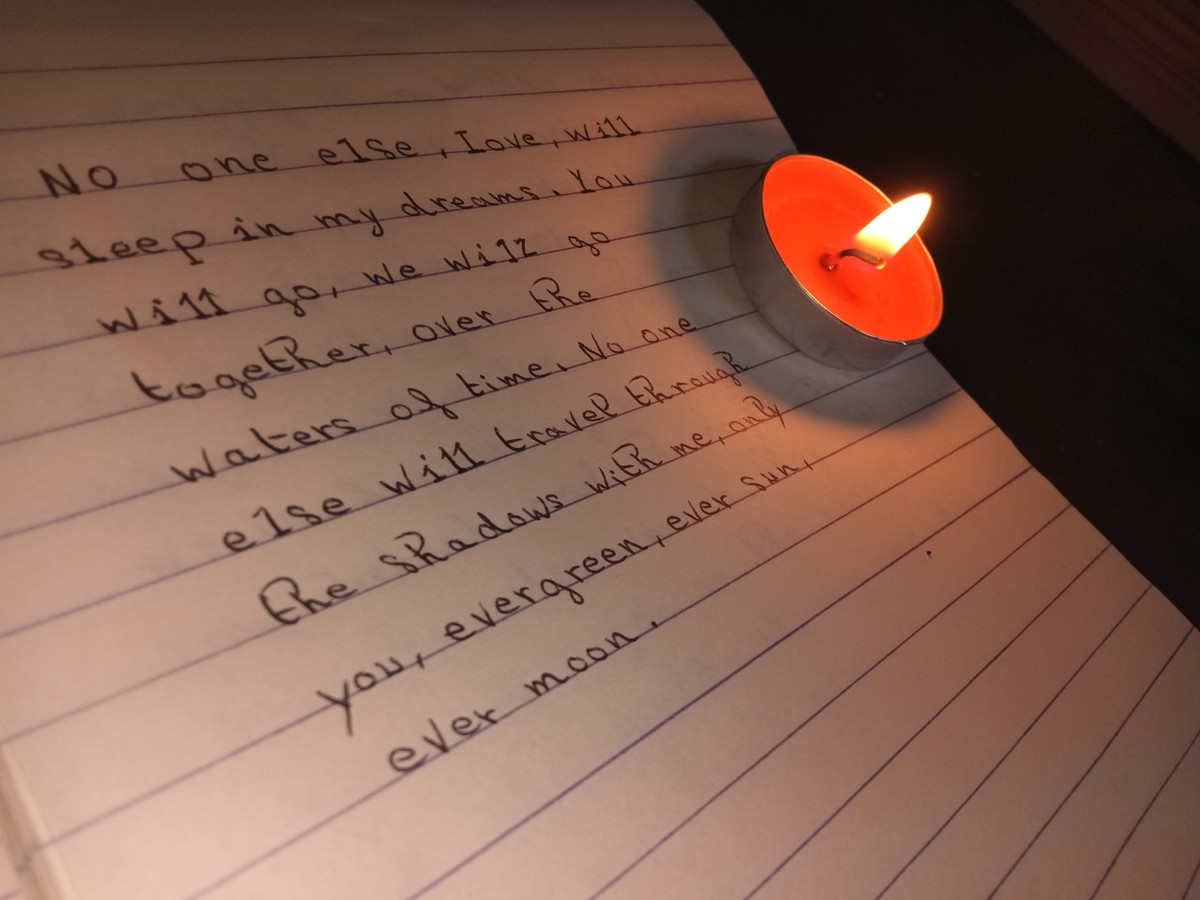 No one else, Love, will
sleep in my dreams. You
will go, we will go
together, over the
waters of time. No one
else will travel through
the shadows with me, only
you, evergreen, ever sun,
ever moon.